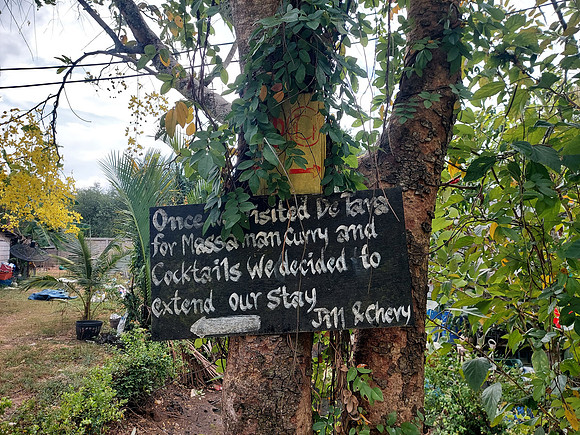 Once visited De Tara
for Massaman curry and
Cocktails We decided to
extend our Stay
Jill & Chery